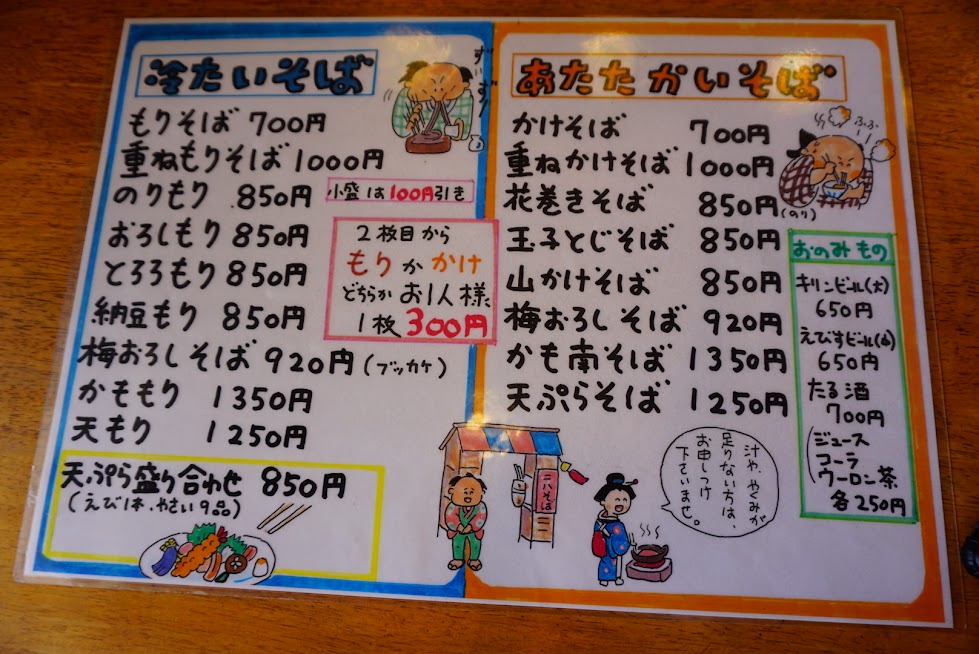 冷たいそば
ずぃずぃ
もりそば 700円
重ねもりそば 1000円
のりもり 850円
小盛は100円引き
おろしもり 850円
とろろもり 850円
納豆もり 850円
梅おろしそば 920円(ブッカケ)
かももり 1350円
天もり 1250円
2枚目から
もりかかけ
どちらかお1人様
1枚300円
天ぷら盛り合わせ 850円
(えび1本、やさい9品)
あたたかいそば
ふぅふぅ
かけそば 700円
重ねかけそば 1000円
花巻きそば 850円(のり)
玉子とじそば 850円
山かけそば 850円
梅おろしそば 920円
かも南そば 1350円
天ぷらそば 1250円
おのみもの
キリンビール(大)
650円
えびすビール(小)
650円
たる酒
700円
ジュース
コーラ
ウーロン茶
各250円
二八そば
汁や、やくみが
足りない方は、
お申しつけ
下さいませ。